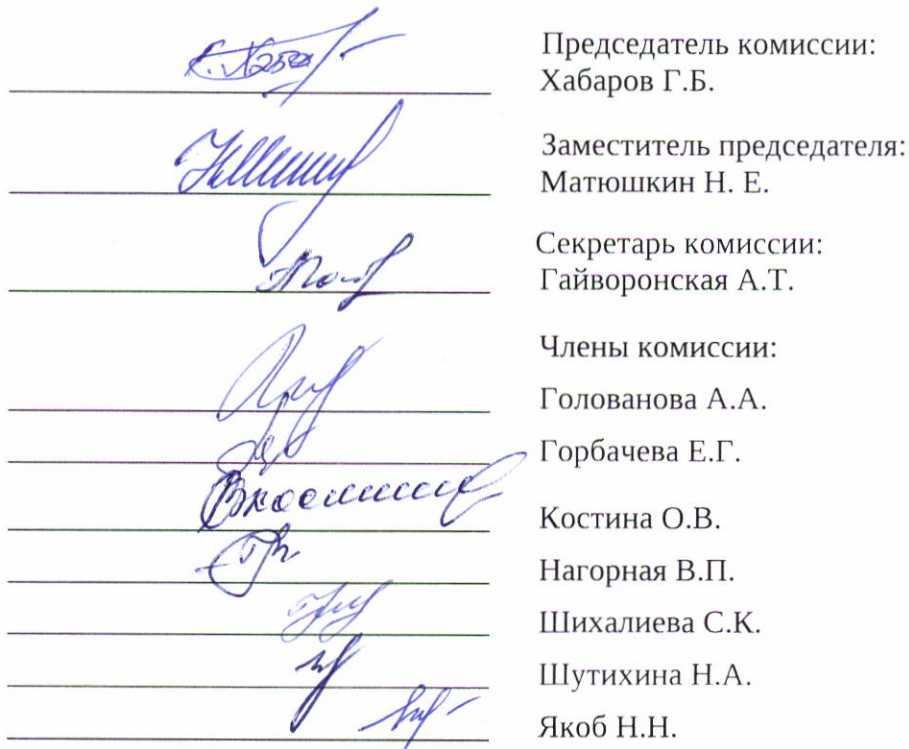 Председатель комиссии:
Хабаров Г.Б.
Заместитель председателя:
Матюшкин Н. Е.
Секретарь комиссии:
Гайворонская А.Т.
Члены комиссии:
Голованова А.А.
Горбачева Е.Г.
Костина О.В.
Нагорная В.П.
Шихалиева С.К.
Шутихина Н.А.
Якоб Н.Н.